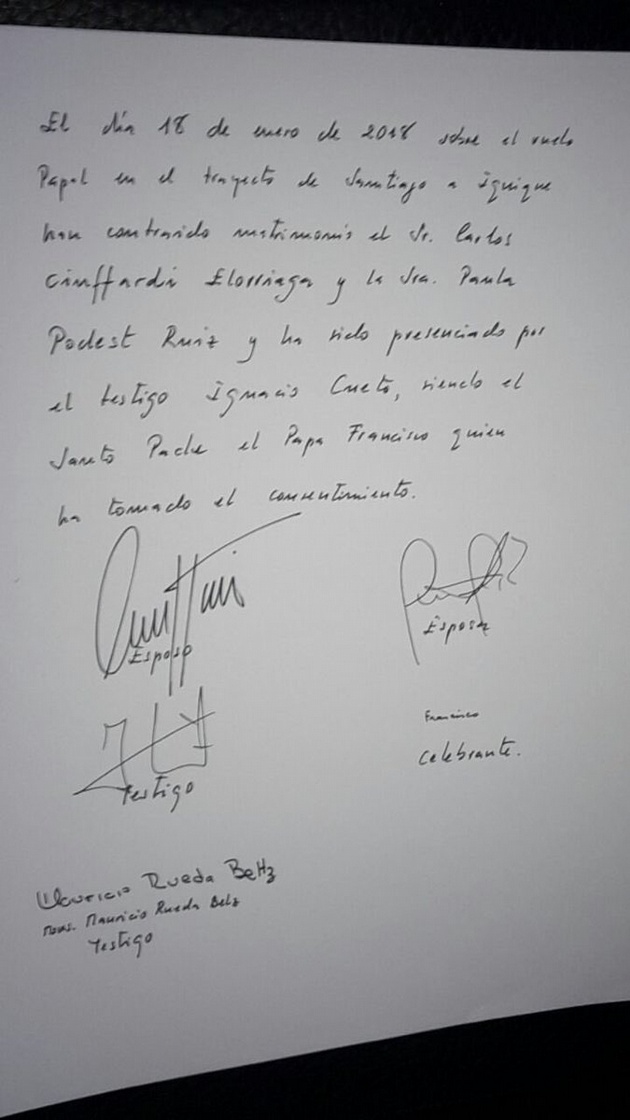 El día 18 de enero de 2018 sobre el vuelo
Papal en el trayecto de Santiago a Iquique
han contraido matrimonio el Sr. Carlos
Ciuffardi Elorriaga y la Sra. Paula
Podest Ruiz y ha sido presenciado por
el testigo Ignacio Cueto, siendo el
Santo Padre el Papa Francisco quien
ha tomado el consentimiento.
Esposo
Esposa
Francisco
Celebrante.
Testigo
Mauricio Rueda Beltz
Mons. Mauricio Rueda Belz
Testigo